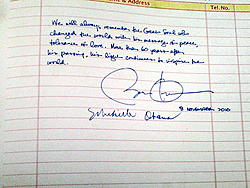 & Address
Tel. No.
We will always remember the Great Soul who
changed the world with his message of peace,
tolerance and love. More than 60 years after
his passing, his light continues to inspire the
world.
9 November 2010
Michelle Obama